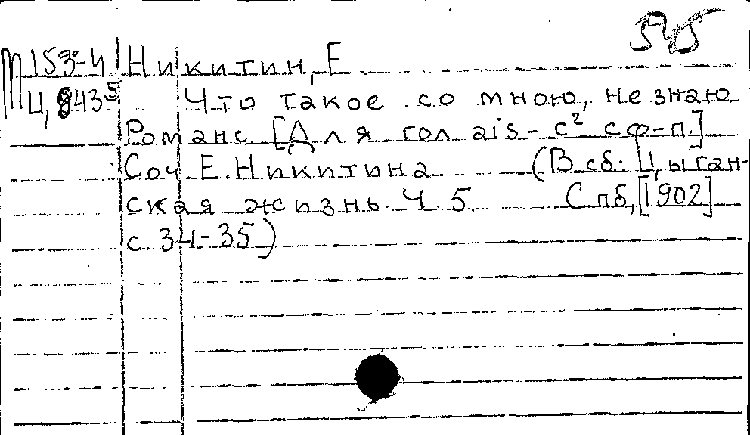 545
М153-4 Никитин, Е
Ц,843⁵ Что такое со мною, не знаю
Романс [Для гол ais-c² с ф-п.]
Соч Е. Никитина (В сб: Цыган-
ская жизнь. Ч 5. Спб, [1902]
с. 34-35)